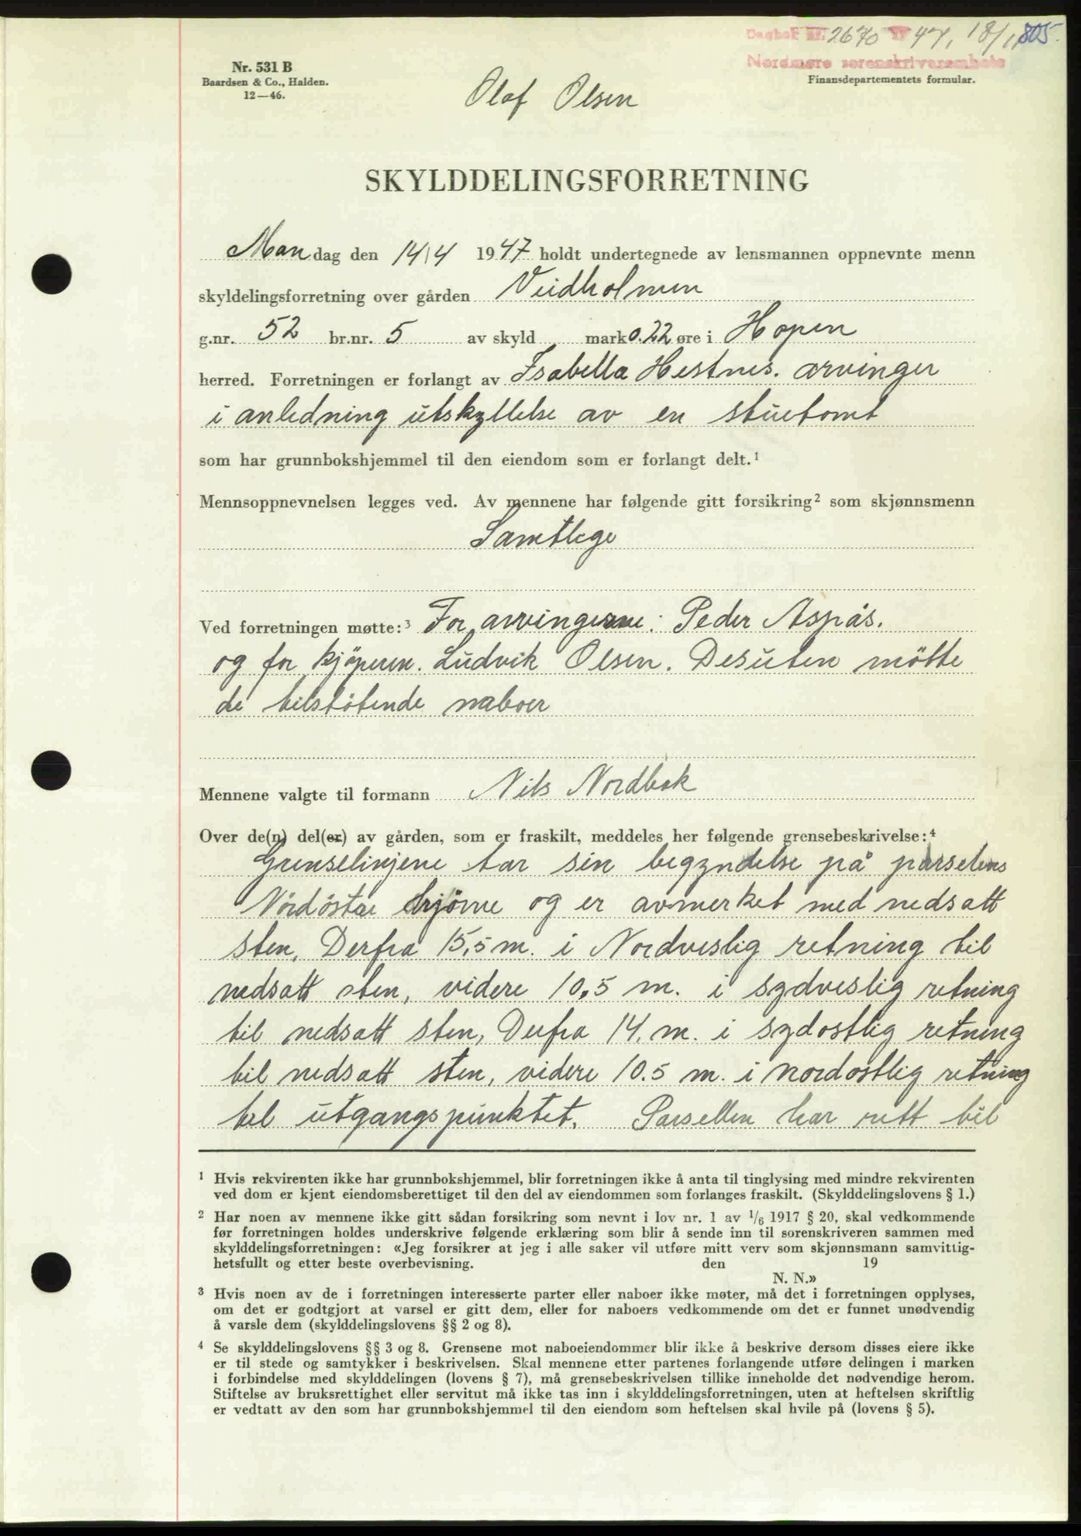 Dagbok nr. 2670 19 47, 18/11 805.
Nordmøre sorenskriverembete
Nr. 531 B
Baardsen & Co., Halden.
12—46.
Finansdepartementets formular.
Olaf Olsen
SKYLDDELINGSFORRETNING
Mandag den 14/4 1947 holdt undertegnede av lensmannen oppnevnte menn
skyldelingsforretning over gården Veidholmen
g.nr. 52 br.nr. 5 av skyld mark 0.22 øre i Hopen
herred. Forretningen er forlangt av Isabella Hestnes. arvinger
i anledning utskyllelse av en stuetomt
som har grunnbokshjemmel til den eiendom som er forlangt delt.¹
Mennsoppnevnelsen legges ved. Av mennene har følgende gitt forsikring² som skjønnsmenn
Samtlege
Ved forretningen møtte:³ For arvingerne: Peder Aspås.
og for kjøperen. Ludvik Olsen. Desuten møtte
de tilstøtende naboer
Mennene valgte til formann Nils Nordbak
Over de(n) del(er) av gården, som er fraskilt, meddeles her følgende grensebeskrivelse:⁴
Grenselinjene tar sin begyndelse på parselens
Nordöstre hjörne og er avmerket med nedsatt
sten, Derfra 15,5 m. i Nordveslig retning til
nedsatt sten, videre 10,5 m. i sydveslig retning
til nedsatt sten, Derfra 14. m. i sydostlig retning
til nedsatt sten, videre 10.5 m. i nordostlig retning
til utgangspunktet. Parsellen har rett til
¹ Hvis rekvirenten ikke har grunnbokshjemmel, blir forretningen ikke å anta til tinglysing med mindre rekvirenten
ved dom er kjent eiendomsberettiget til den del av eiendommen som forlanges fraskilt. (Skylddelingslovens § 1.)
² Har noen av mennene ikke gitt sådan forsikring som nevnt i lov nr. 1 av 1/6 1917 § 20, skal vedkommende
før forretningen holdes underskrive følgende erklæring som blir å sende inn til sorenskriveren sammen med
skylddelingsforretningen: «Jeg forsikrer at jeg i alle saker vil utføre mitt verv som skjønnsmann samvittig-
hetsfullt og etter beste overbevisning. den 19
N. N.»
³ Hvis noen av de i forretningen interesserte parter eller naboer ikke møter, må det i forretningen opplyses,
om det er godtgjort at varsel er gitt dem, eller for naboers vedkommende om det er funnet unødvendig
å varsle dem (skylddelingslovens §§ 2 og 8).
⁴ Se skylddelingslovens §§ 3 og 8. Grensene mot naboeiendommer blir ikke å beskrive dersom disses eiere ikke
er til stede og samtykker i beskrivelsen. Skal mennene etter partenes forlangende utføre delingen i marken
i forbindelse med skylddelingen (lovens § 7), må grensebeskrivelsen tillike inneholde det nødvendige herom.
Stiftelse av bruksrettighet eller servitut må ikke tas inn i skylddelingsforretningen, uten at heftelsen skriftlig
er vedtatt av den som har grunnbokshjemmel til den eiendom som heftelsen skal hvile på (lovens § 5).